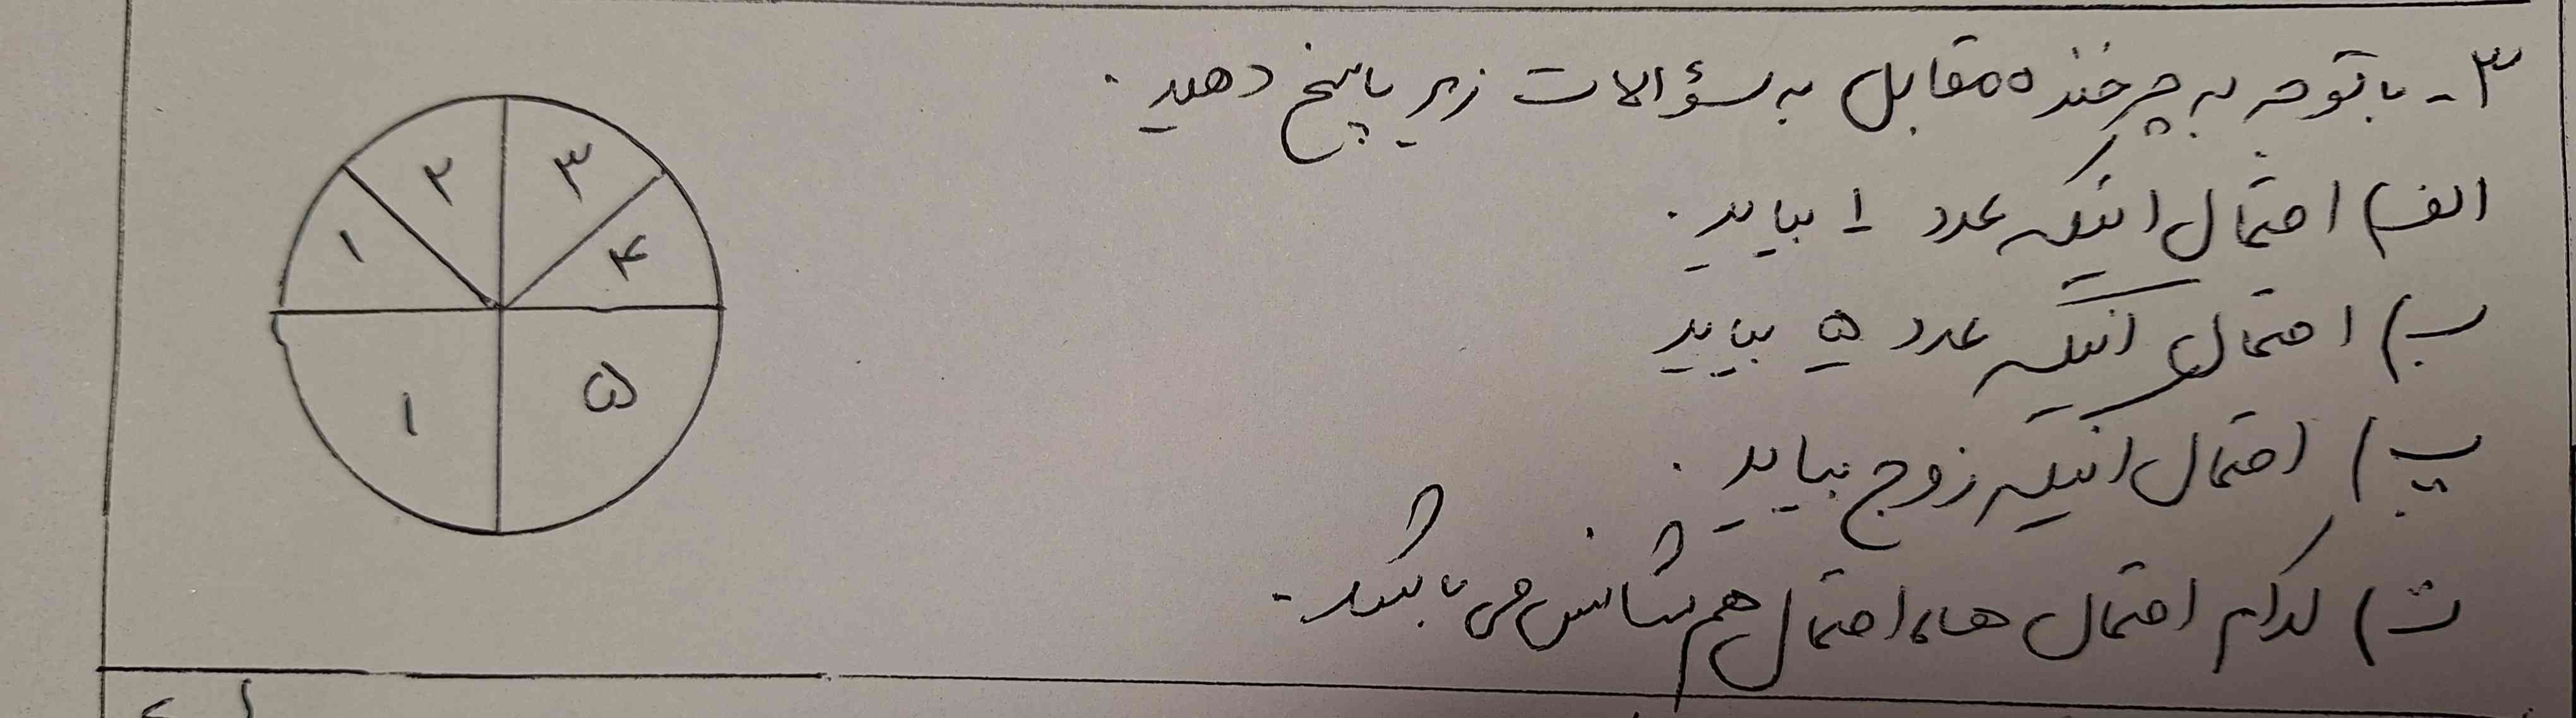 ۳- با توجه به چرخنده مقابل به سؤالات زیر پاسخ دهید.
الف) احتمال اینکه عدد ۱ بیاید.
ب) احتمال اینکه عدد ۵ بیاید
پ) احتمال اینکه زوج بیاید.
ت) کدام احتمال ها، احتمال هم شانس می باشد.
۲ ۳
۱ ۴
۱ ۵